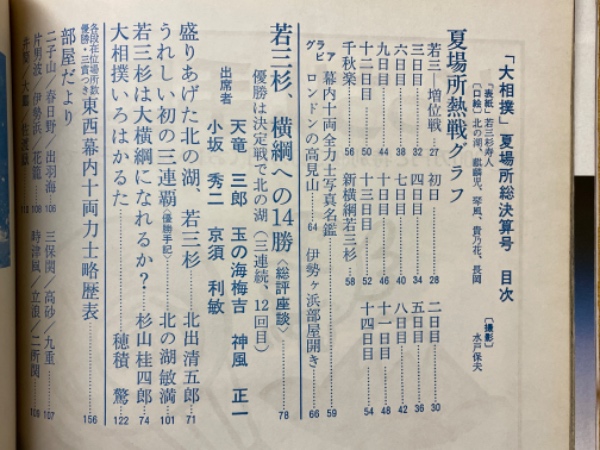 「大相撲」夏場所総決算号　目次
〔表紙〕若三杉寿人
〔口絵〕北の湖、麒麟児、琴風、貴乃花、長岡
〔撮影〕水戸保夫
夏場所熱戦グラフ
若三―増位戦……27　初日……28　二日目……30
三日目……32　四日目……34　五日目……36
六日目……38　七日目……40　八日目……42
九日目……44　十日目……46　十一日目……48
十二日目……50　十三日目……52　十四日目……54
千秋楽……56　新横綱若三杉……58
グラビア
幕内十両全力士写真名鑑……59
ロンドンの高見山……64　伊勢ヶ浜部屋開き……66
若三杉、横綱への14勝〈総評座談〉……78
優勝は決定戦で北の湖（三連続、12回目）
出席者　天竜三郎　玉の海梅吉　神風正一
小坂秀二　京須利敏
盛りあげた北の湖、若三杉……北出清五郎……71
うれしい初の三連覇（優勝手記）……北の湖敏満……101
若三杉は大横綱になれるか？……杉山桂四郎……74
大相撲いろはかるた……穂積驚……122
各段在位場所数
優勝・三賞つき
東西幕内十両力士略歴表……156
部屋だより
二子山／春日野／出羽海……106　三保関／高砂／九重……107
片男波／伊勢浜／花籠……108　時津風／立浪／二所関……109